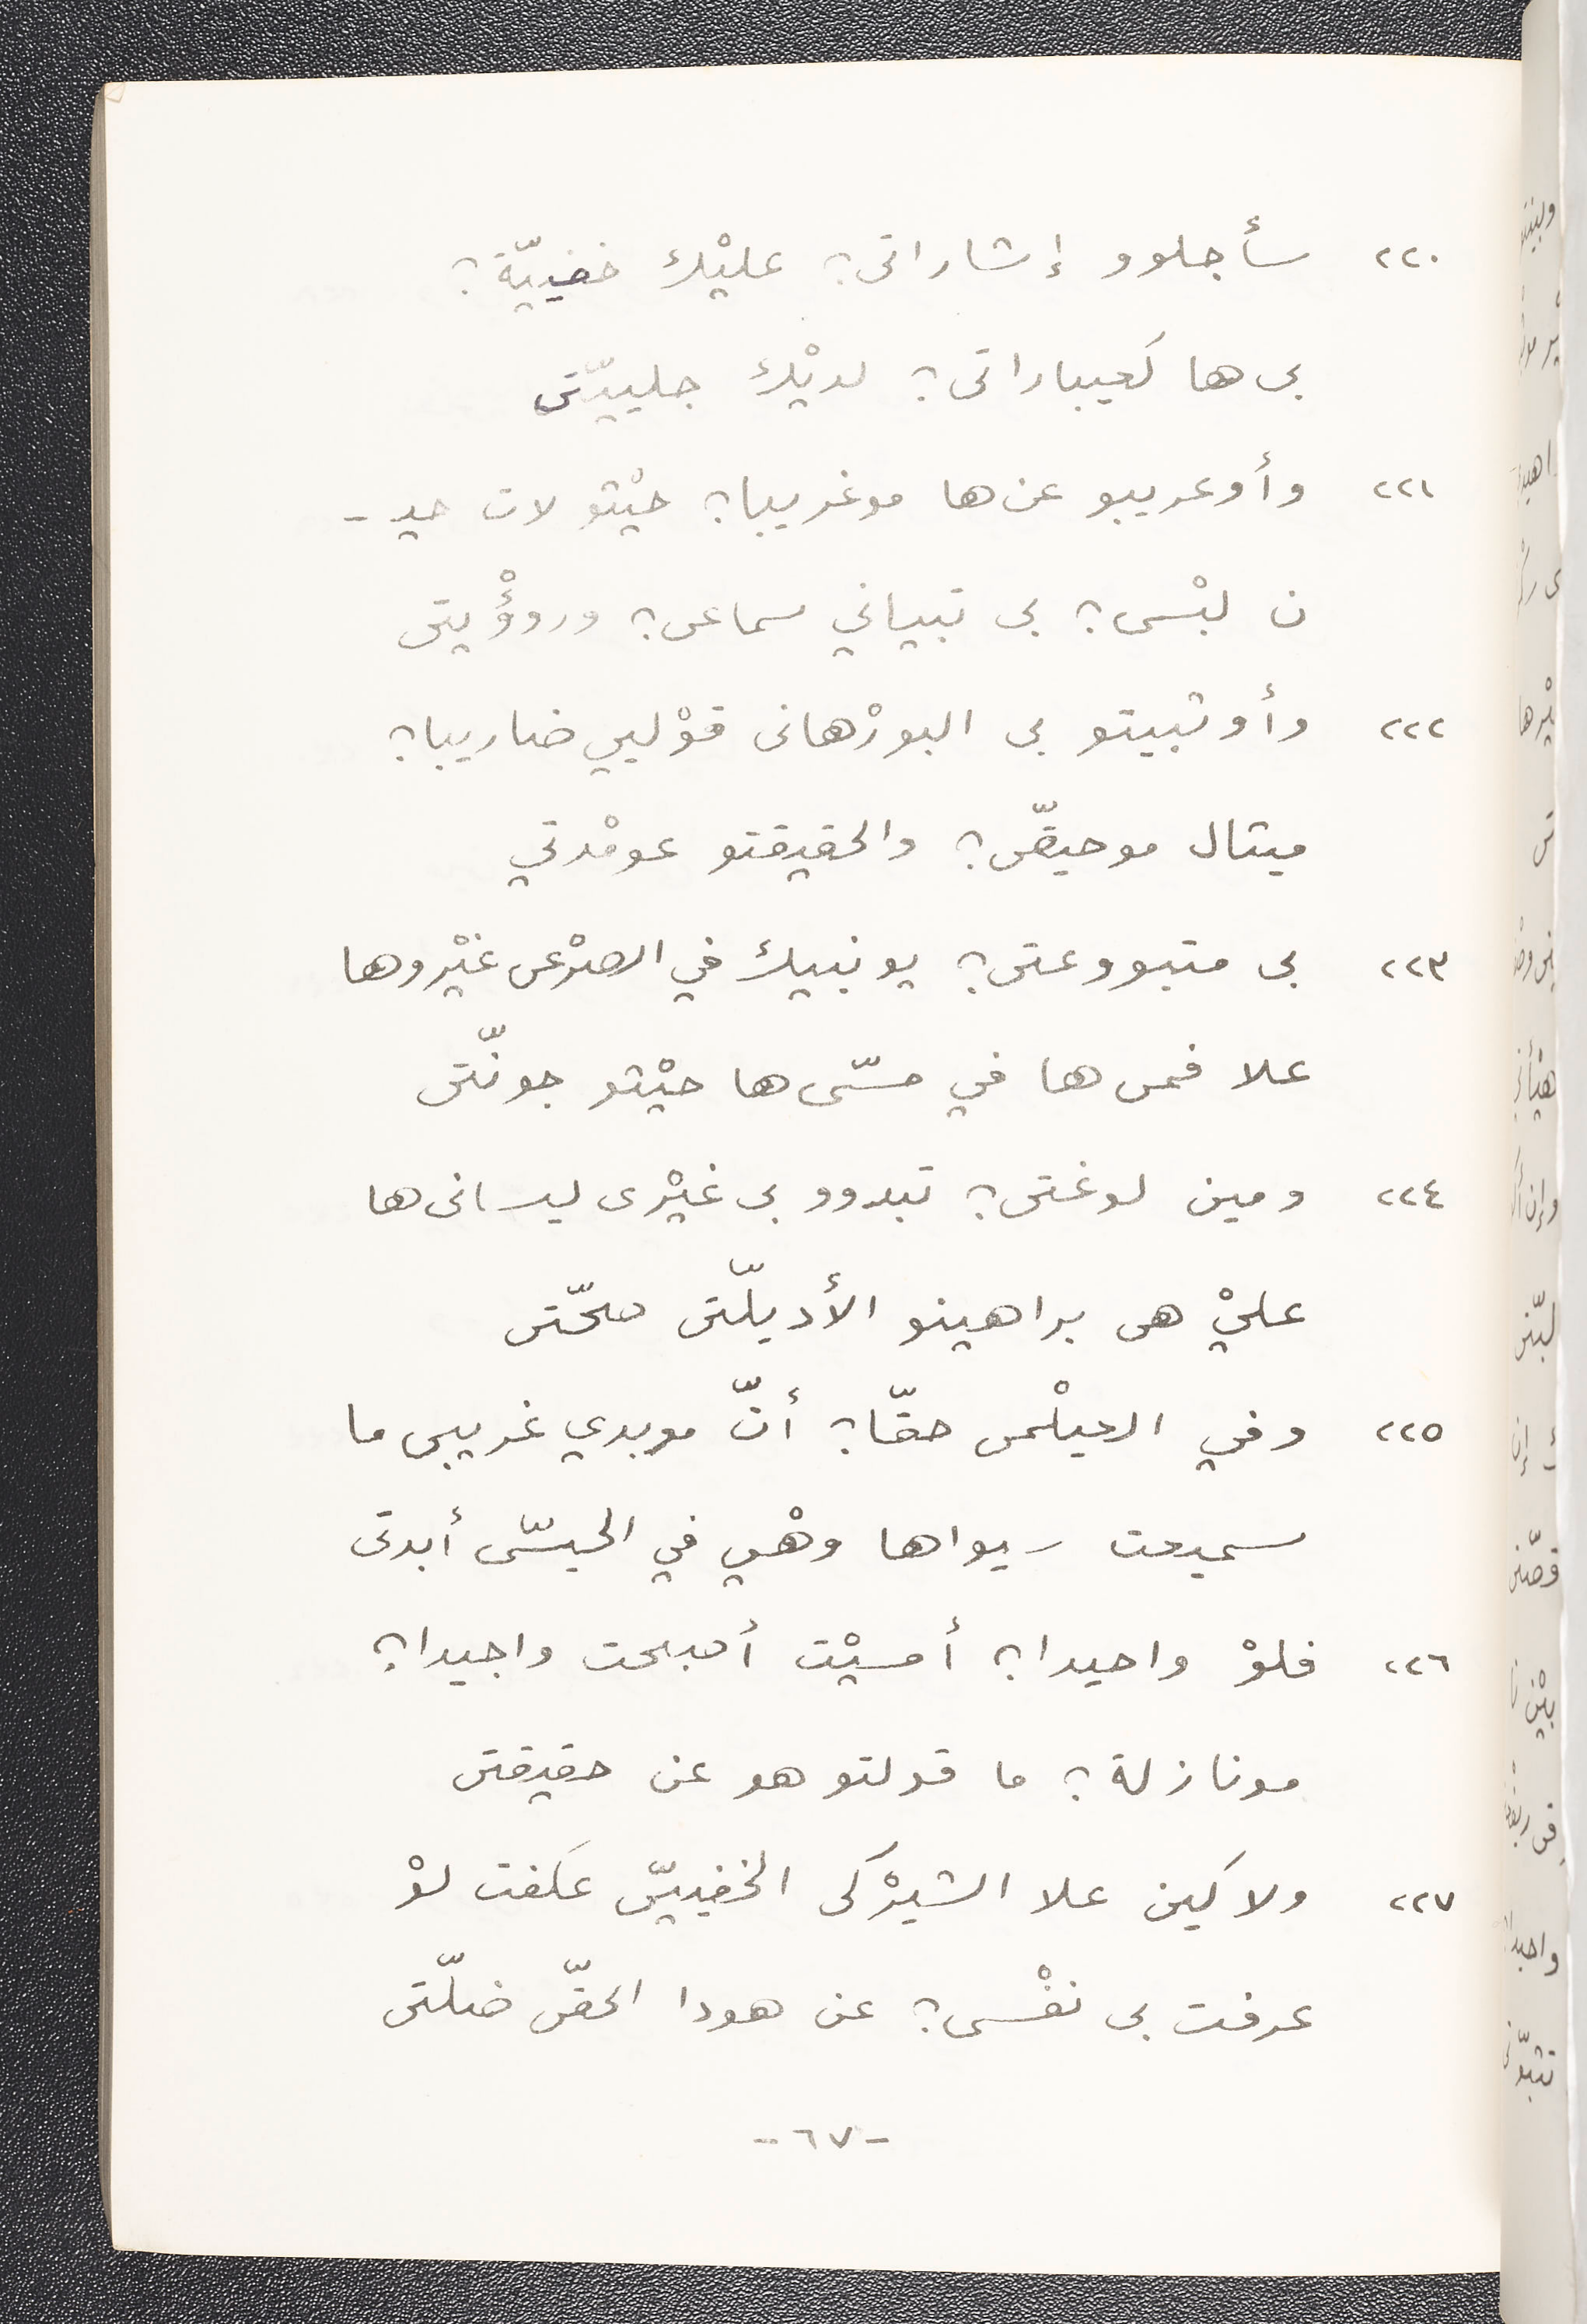 ٢٢٠ سأجلوو إشاراتى؟ عليْك خفييّة؟
بى ها كعيباراتى؟ لديْك جلييّتى
٢٢١ وأوعريبو عن ها موغريبا؟ حيْتو لات حيـ -
ن لبْسى؟ بى تبياني سماعى؟ وروؤْيتى
٢٢٢ وأوتبيتو بى البورْهانى قوْليي ضاريبا؟
ميتال موحيقّى؟ والحقيقتو عومْدتي
٢٢٣ بى متبووعتى؟ يونبيك في الصرْعى غيْروها
علا فمى ها في مسّى ها حيْتو جونّتى
٢٢٤ ومين لوغتى؟ تبدوو بى غيْرى ليسانى ها
عليْ هى براهينو الأديلّتى صحّتى
٢٢٥ وفي العيلْمى حقّا؟ أنّ موبدي غريبى ما
سميعت سيواها وهْي في الحيسّى أبدتى
٢٢٦ فلوْ واحيدا؟ أمسيْت أصبحت واجيدا؟
مونازلة؟ ما قولتو هو عن حقيقتى
٢٢٧ ولاكين علا الشيرْكى الخفييّى عكفت لوْ
عرفت بى نفْسى؟ عن هودا الحقّى ضلّتى
-٦٧-